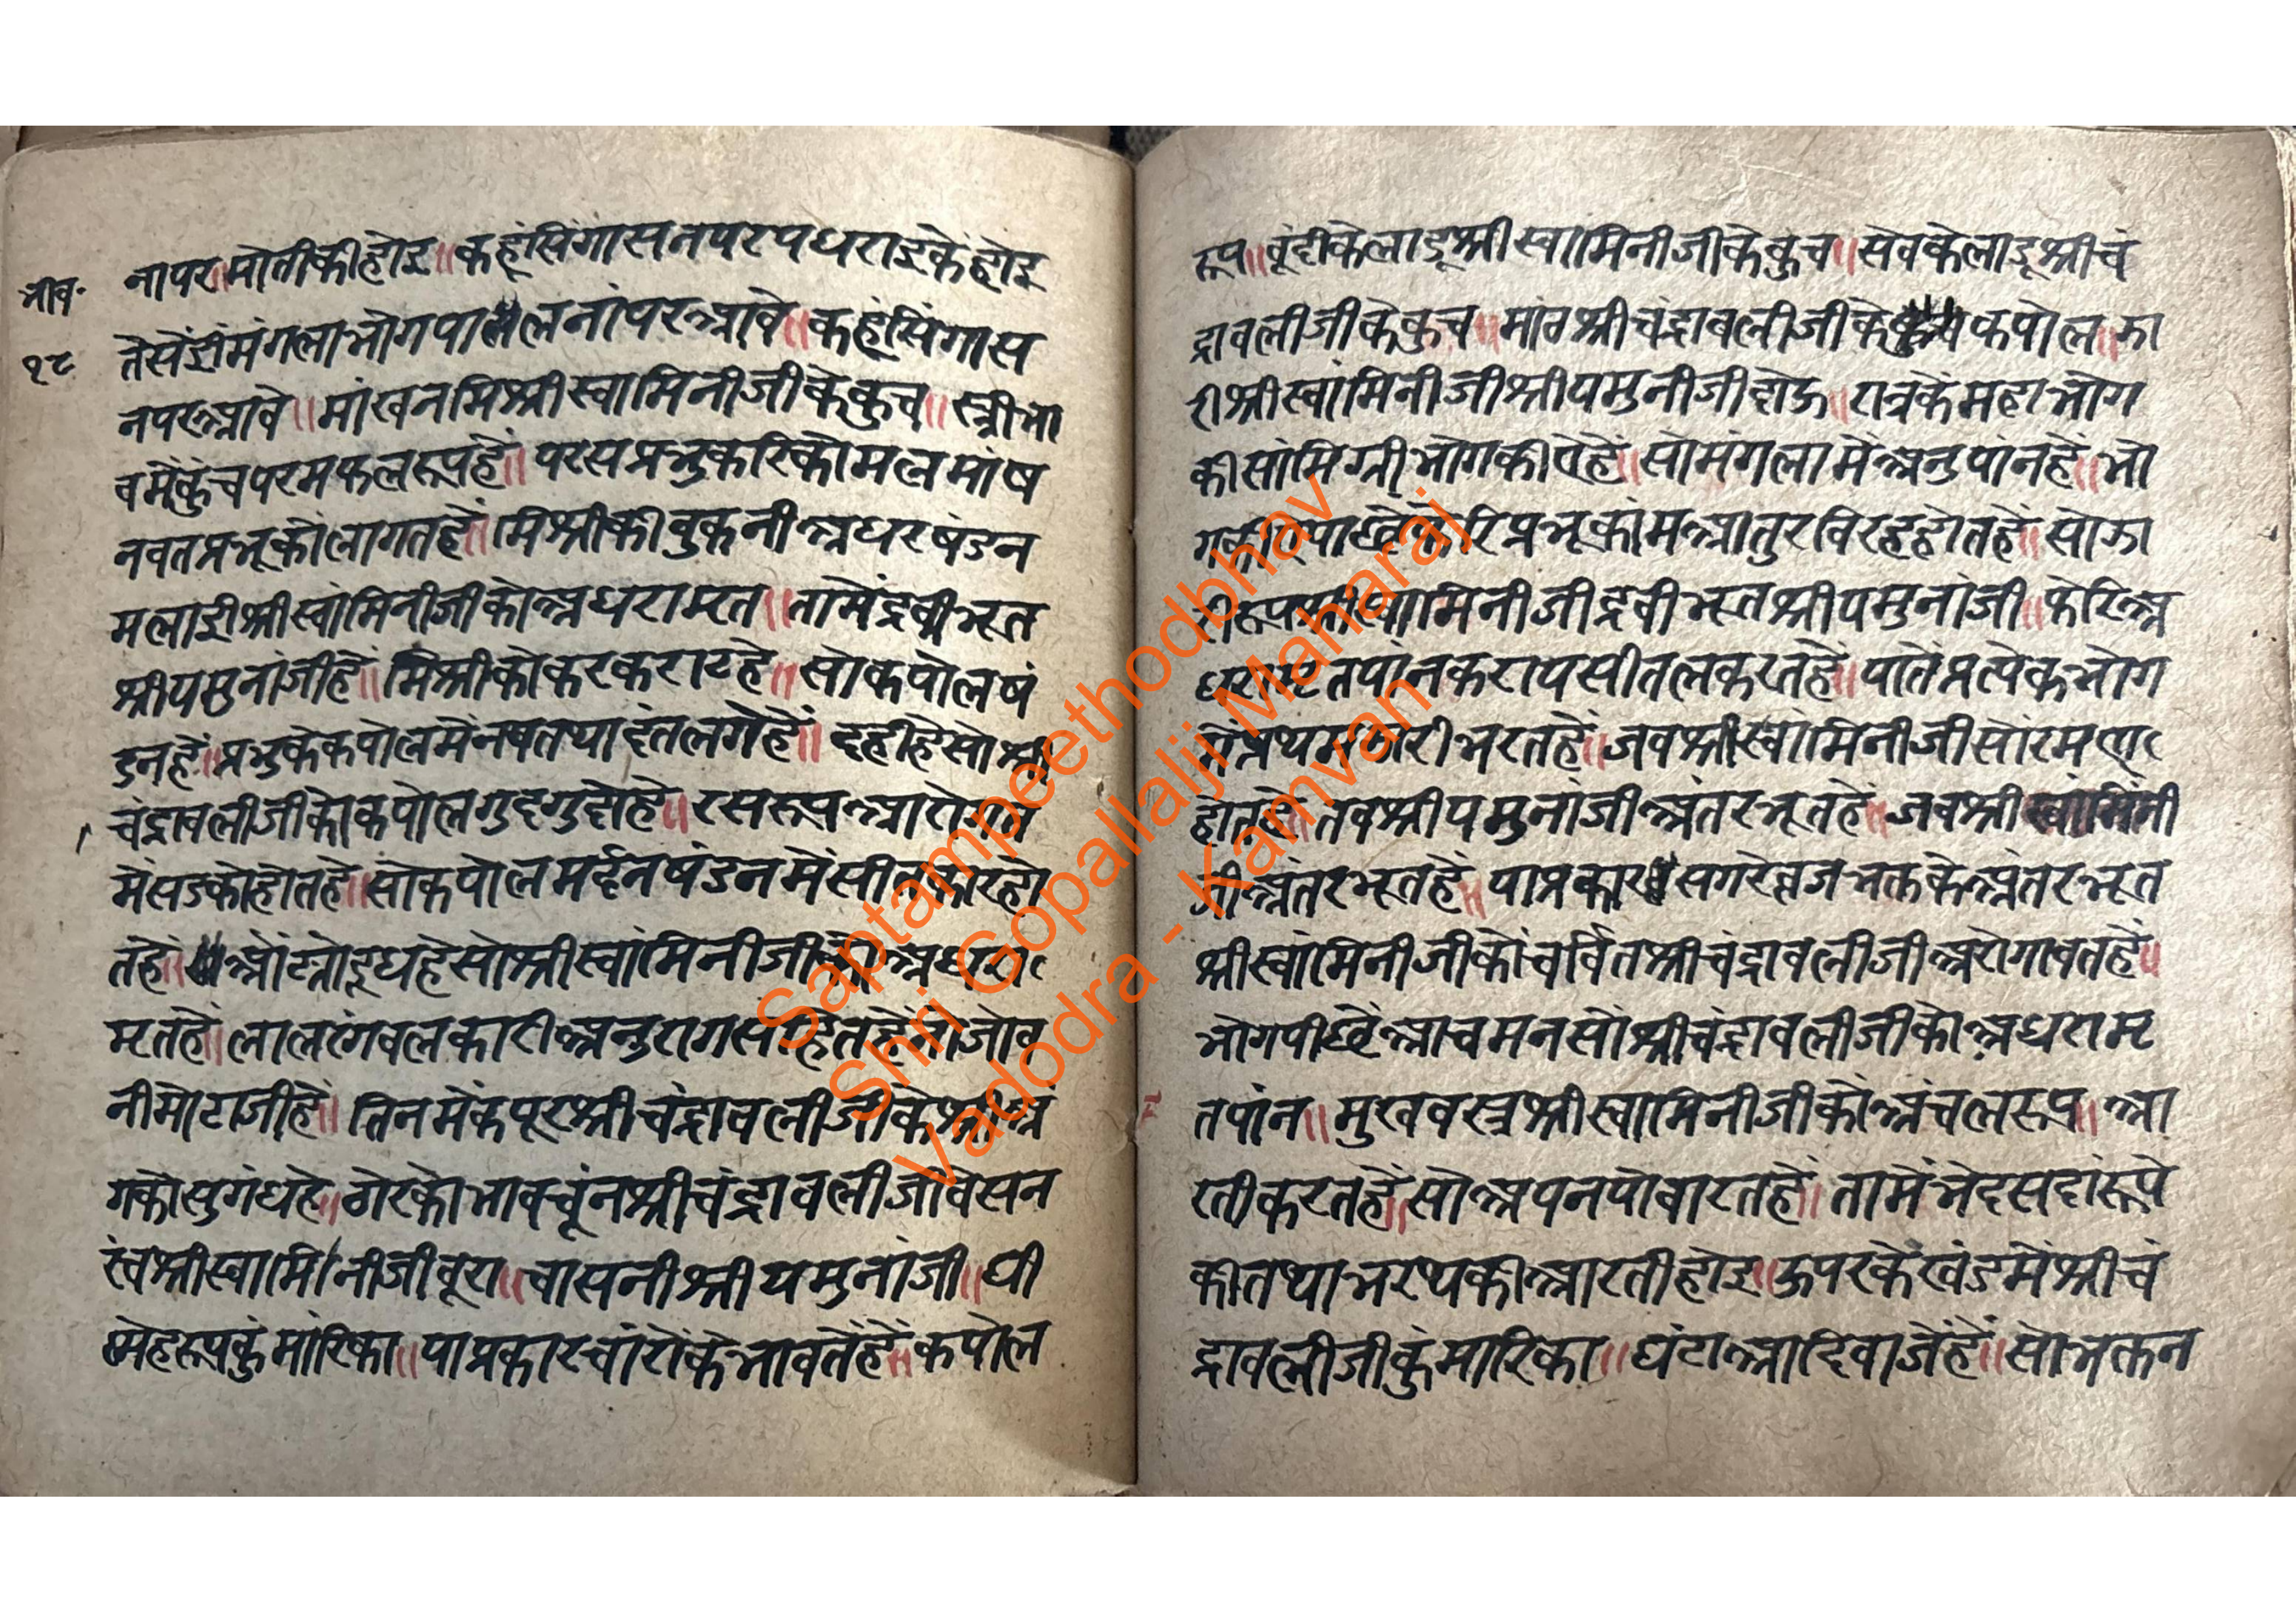 भाव॰
१८
नापर॥मोतीकीहोइ॥कहूंसिंगासनपरपधराइकेंहोइ
तेसेंहीमंगलाभोगपालनांपरआवे॥कहूंसिंगास
नपरआवे॥मांखनमिश्रीस्वामिनीजीकेकुच॥स्त्रीभा
वमेंकुंचपरमफलरूपहें॥परसप्रभुकरिकोमलमांष
नवतप्रभूकोंलागतहें॥मिश्रीकीबुकनीअधरषंडन
मलाइीश्रीस्वांमिनीजीकोअधरामृत॥तामेंद्रवीभूत
श्रीयमुनांजीहें॥मिश्रीकोकरकराटहे॥सोकपोलषं
डनहें॥प्रभुकेकपोलमेंनषतथादंतलगेहें॥दहीहेसोश्री
चंद्रावलीजीकोकपोलगुदगुदोहे॥रसरूपआरोगत
मेंसडकोहोतहे॥सोकपोलमर्दनषंडनमेंसीतकारहो
तहें॥ओंट्योदूधहेसोश्रीस्वांमिनीजीकोअधरा
मृतहें॥लालरंगबलकारीअनुरागसहितहेंतोजोव
नीमोटाजीहें॥तिनमेंकपूरश्रीचंद्रावलीजीकेश्रीअं
गकोसुगंधहे॥ठोरकोभावचूंनश्रीचंद्रावलीजीबेसन
स्वंश्रीस्वामिनीजीबूरा॥चासनीश्रीयमुनांजी॥घी
स्नेहरूपकुंमांरिका॥याप्रकारचांरोंकेभावतेंहें॥कपोल
रूप॥बूंदीकेलाडूश्रीस्वामिनीजीकेकुच॥सेवकेलाडूश्रीचं
द्रावलीजीकेकुच॥मांठश्रीचंद्रावलीजीकेकपोल॥झा
रीश्रीस्वांमिनीजीश्रीयमुनीजीदोऊ॥रात्रकेमहाभोग
कीसांमिग्रीभोगकीवेहें॥सोमंगलामेंअनुपांनहें॥भो
फेरिप्रभूकोंमआतुरविरहहोतहें॥सोझा
मिनीजीद्रवीभूतश्रीयमुनांजी॥फेरिअ
धरामृतपांनकरायसीतलकरतहें॥यातेंप्रत्येकभोग
मेंप्रथमझारीभरतहें॥जबश्रीस्वांमिनीजीसोंरमण
होतहें॥तबश्रीयमुनांजीअंतरभूतहें॥जबश्रीस्वांमिंनी
जीअंतरभूतहें॥याप्रकारसगरेव्रजभक्तकेअंतरभूत
श्रीस्वांमिनीजीकोंचर्वितश्रीचंद्रावलीजीअरोगावतहें॥
भोगपीछेंआचमनसोंश्रीचंद्रावलीजीकोअधरामृ
तपांन॥मुखवस्त्रश्रीस्वामिनीजीकोअंचलरूप॥आ
रतीकरतहें॥सोअपनपोवारतहें॥तामेंभेदसदांरूपे
कीतथाभरथकीआरतीहोइ॥ऊपरकेखंडमेंश्रीचं
द्रावलीजीकुंमारिका॥घंटाआदिबाजेंहें॥सोभक्तन